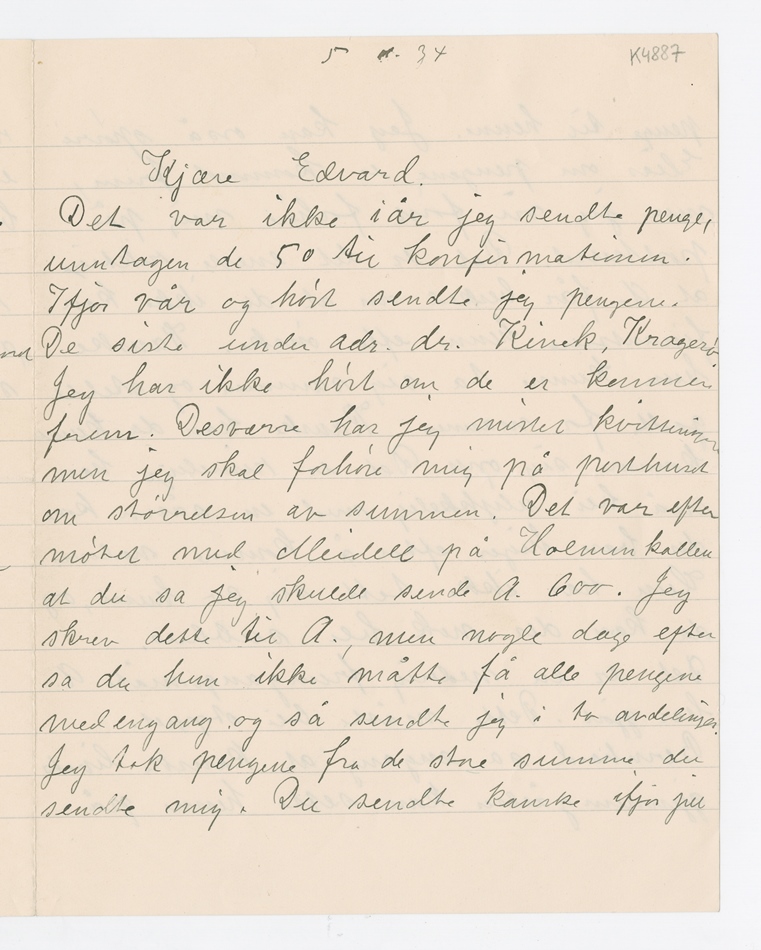 5 34
K4887
Kjære Edvard.
Det var ikke iår jeg sendte penge,
unntagen de 50 til konfirmationen.
Ifjor vår og høst sendte jeg pengene.
De siste under adr. dr. Kinck, Kragerø
Jeg har ikke hørt om de er kommen
frem. Desværre har jeg mistet kvitteringen
men jeg skal forhøre mig på posthuset
om størrelsen av summen. Det var efter
møtet med Meidell på Holmenkollen
at du sa jeg skulde sende A. 600. Jeg
skrev dette til A., men nogle dage efter
sa du hun ikke måtte få alle pengene
medengang og så sendte jeg i to avdelinger.
Jeg tok pengene fra de store summe du
sendte mig. Du sendte kanske ifjor jul